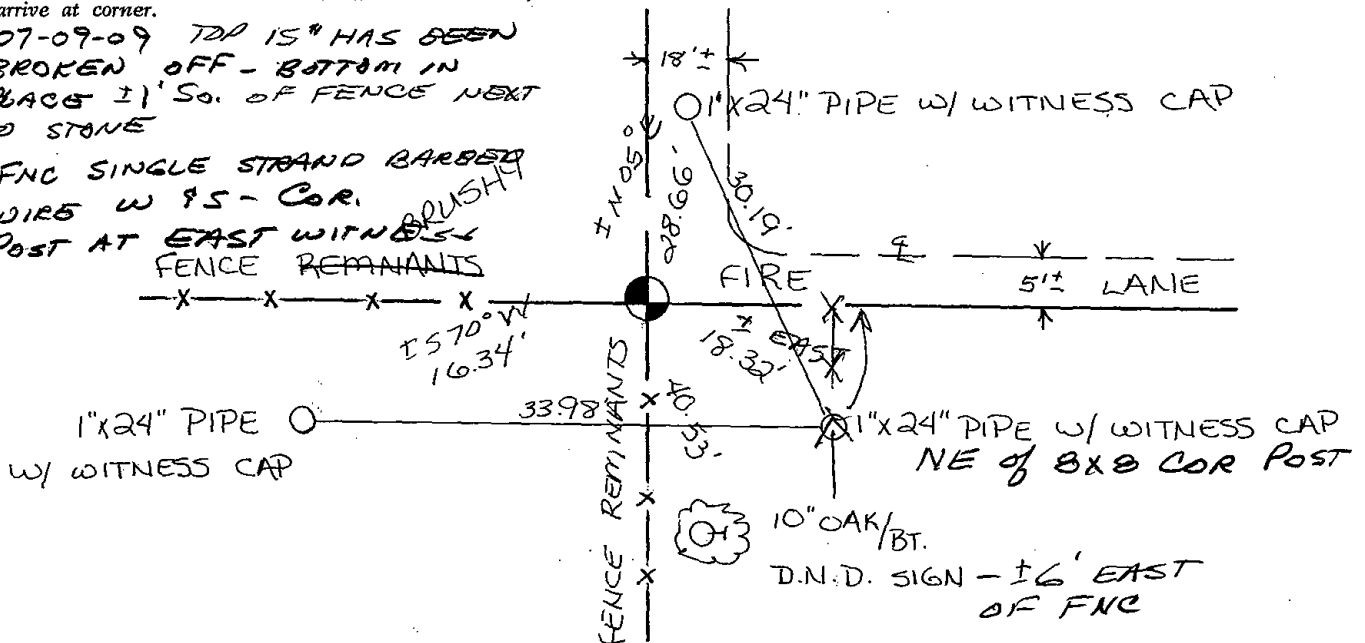 arrive at corner.
07-09-09 TOP 15" HAS BEEN
BROKEN OFF - BOTTOM IN
LACE ±1' SO. OF FENCE NEXT
O STONE
FNC SINGLE STRAND BARBED
WIRE W & S - COR.
POST AT EAST WITNESS
BRUSHY
FENCE REMNANTS
18'±
1"X24" PIPE W/ WITNESS CAP
± N 05°
28.66'
30.19'
℄
FIRE LANE
5'±
±S70°W
16.34'
± EAST
18.32'
FENCE REMINANTS
40.53'
33.98'
1"X24" PIPE
W/ WITNESS CAP
1"X24" PIPE W/ WITNESS CAP
NE of 8X8 COR POST
10" OAK/BT.
D.N.D. SIGN - ±6' EAST
OF FNC